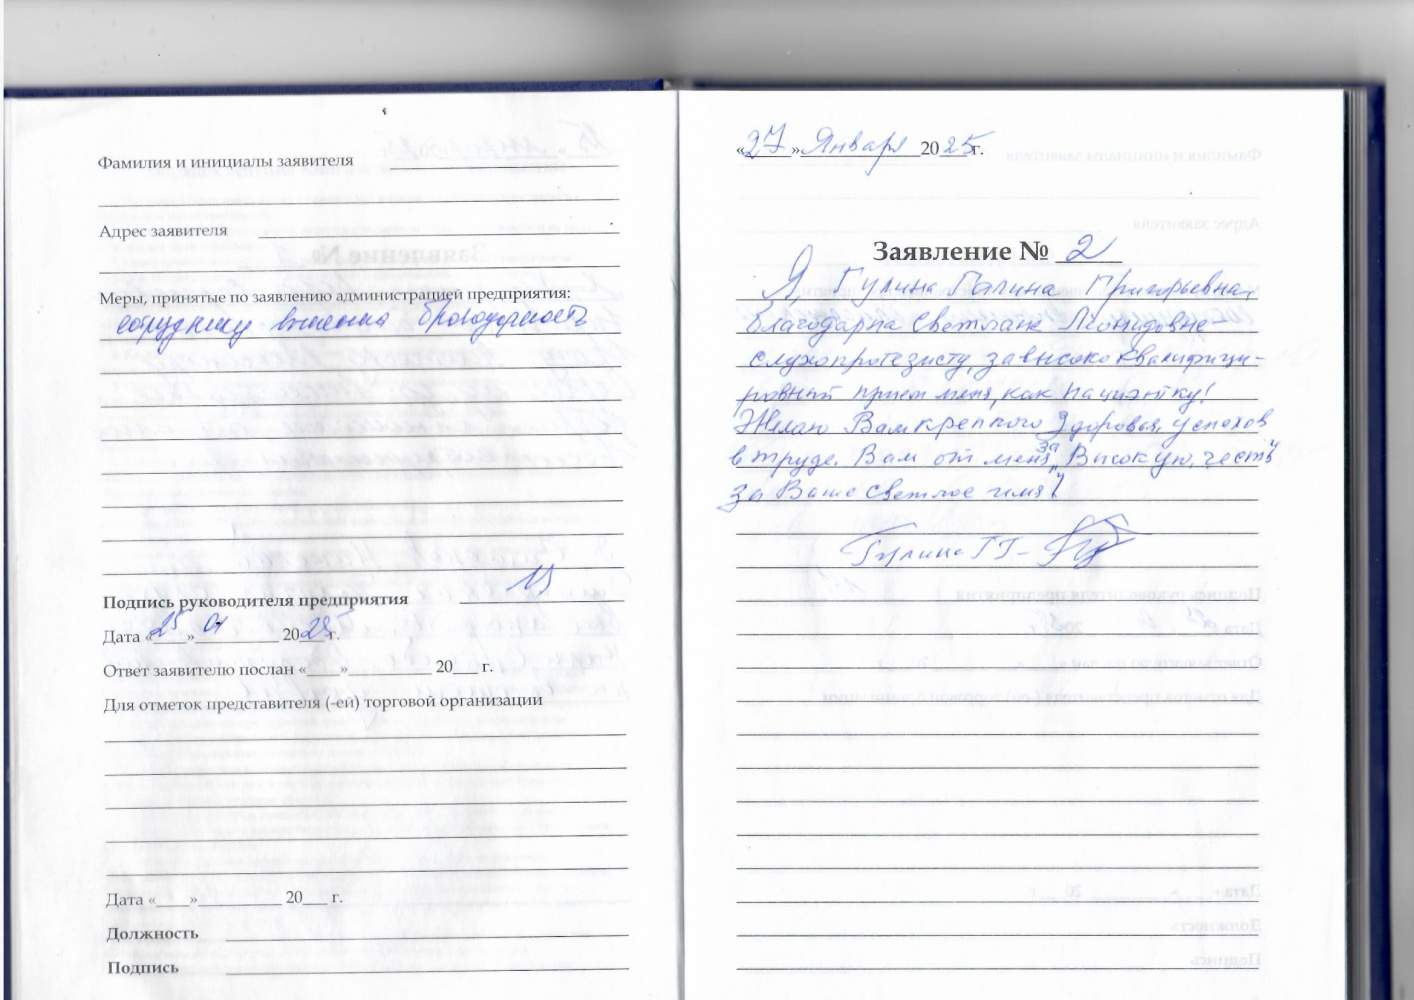 Фамилия и инициалы заявителя
Адрес заявителя
Меры, принятые по заявлению администрацией предприятия:
сотруднику вынесена благодарность
Подпись руководителя предприятия
Дата «25» 01 2025 г.
Ответ заявителю послан «____»__________ 20___ г.
Для отметок представителя (-ей) торговой организации
Дата «____»__________ 20___ г.
Должность
Подпись
«27» Января 2025 г.
Заявление № 2
Я, Гулина Галина Григорьевна,
благодарна Светлане Леонидовне –
слухопротезисту, за высоко квалифици-
рованный прием меня, как пациентку!
Желаю Вам крепкого здоровья, успехов
в труде. Вам от меня за "Высокую честь"
за Ваше светлое имя!
Гулина ГГ –